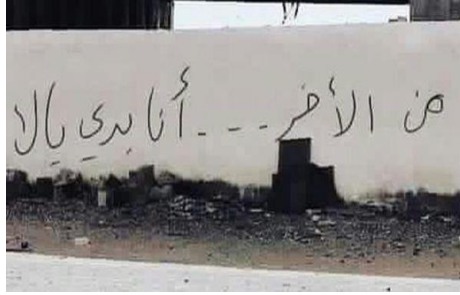 من الأخر . . . أنا بدي يالا